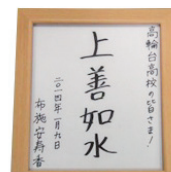 高輪台高校の皆さま!
上善如水
二〇一四年一月九日
布施安寿香